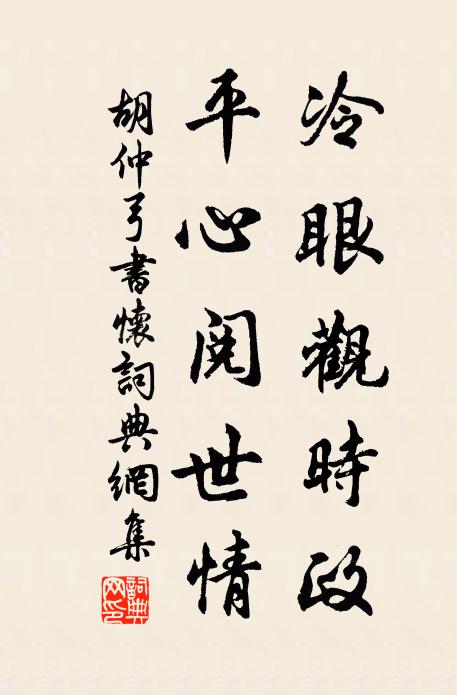 冷眼觀時政
平心閱世情
胡仲弓書懷詞典網集
詞典網印